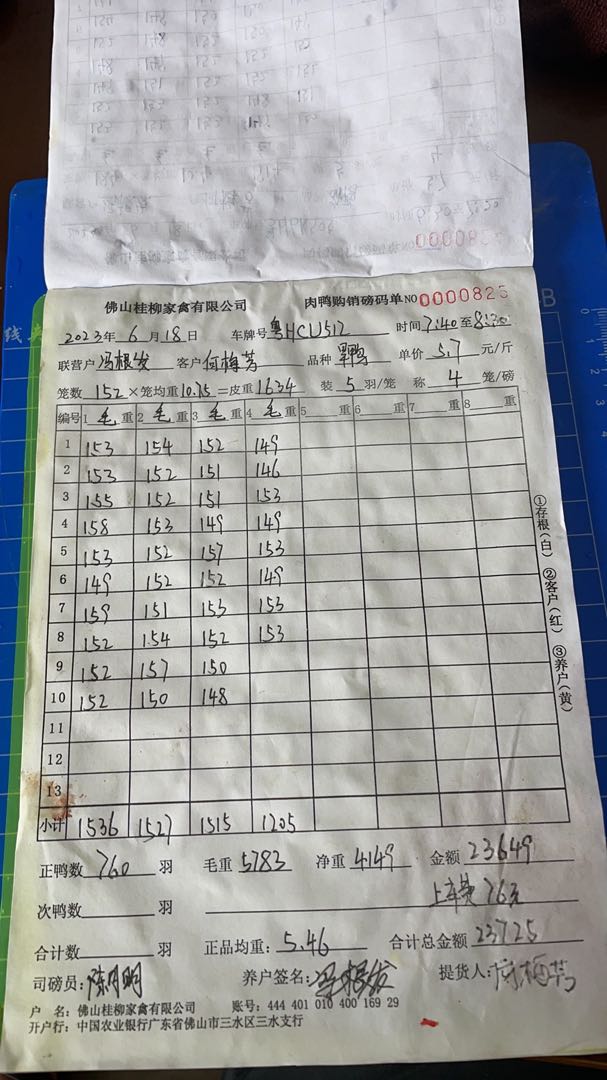 佛山桂柳家禽有限公司 肉鸭购销磅码单 NO 0000825
2023年6月18日 车牌号 粤HCU517 时间 7:40至8:30
联营户 冯根发 客户 何梅芳 品种 单价 5.7 元/斤
笼数 152 ×笼均重 10.75 =皮重 1634 装 5 羽/笼 称 4 笼/磅
编号 1 毛 重 2 毛 重 3 毛 重 4 毛 重 5 重 6 重 7 重 8 重
1 153 154 152 149
2 153 152 151 146
3 155 152 151 153
4 158 153 149 149
5 153 152 157 153
6 149 152 152 149
7 159 151 153 153
8 152 154 152 153
9 152 157 150
10 152 150 148
11
12
13
小计 1536 1527 1515 1205
正鸭数 760 羽 毛重 5783 净重 4149 金额 23649
次鸭数 羽 上车费 76元
合计数 羽 正品均重: 5.46 合计总金额 23725
司磅员: 陈月明 养户签名: 冯根发 提货人: 何梅芳
户 名: 佛山桂柳家禽有限公司 账号: 444 401 010 400 169 29
开户行: 中国农业银行广东省佛山市三水区三水支行
①存根(白) ②客户(红) ③养户(黄)